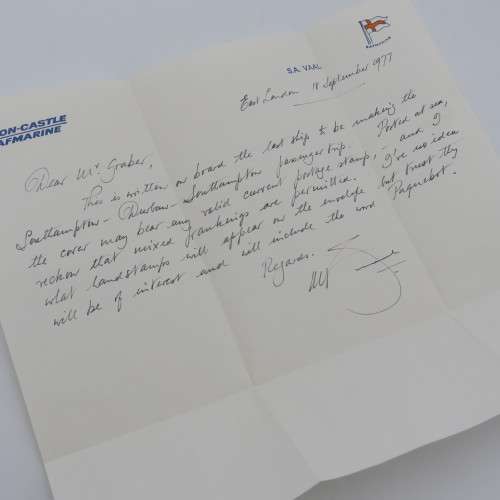 ON-CASTLE
AFMARINE
S.A. VAAL
East London 18 September 1977
Dear Mr. Graber,
This is written on board the last ship to be making the
Southampton - Durban - Southampton passenger trip. Posted at sea,
the cover may bear any valid current postage stamp, - and I
reckon that mixed frankings are permitted. I've no idea
what handstamps will appear on the envelope but trust they
will be of interest and will include the word "Paquebot".
Regards.